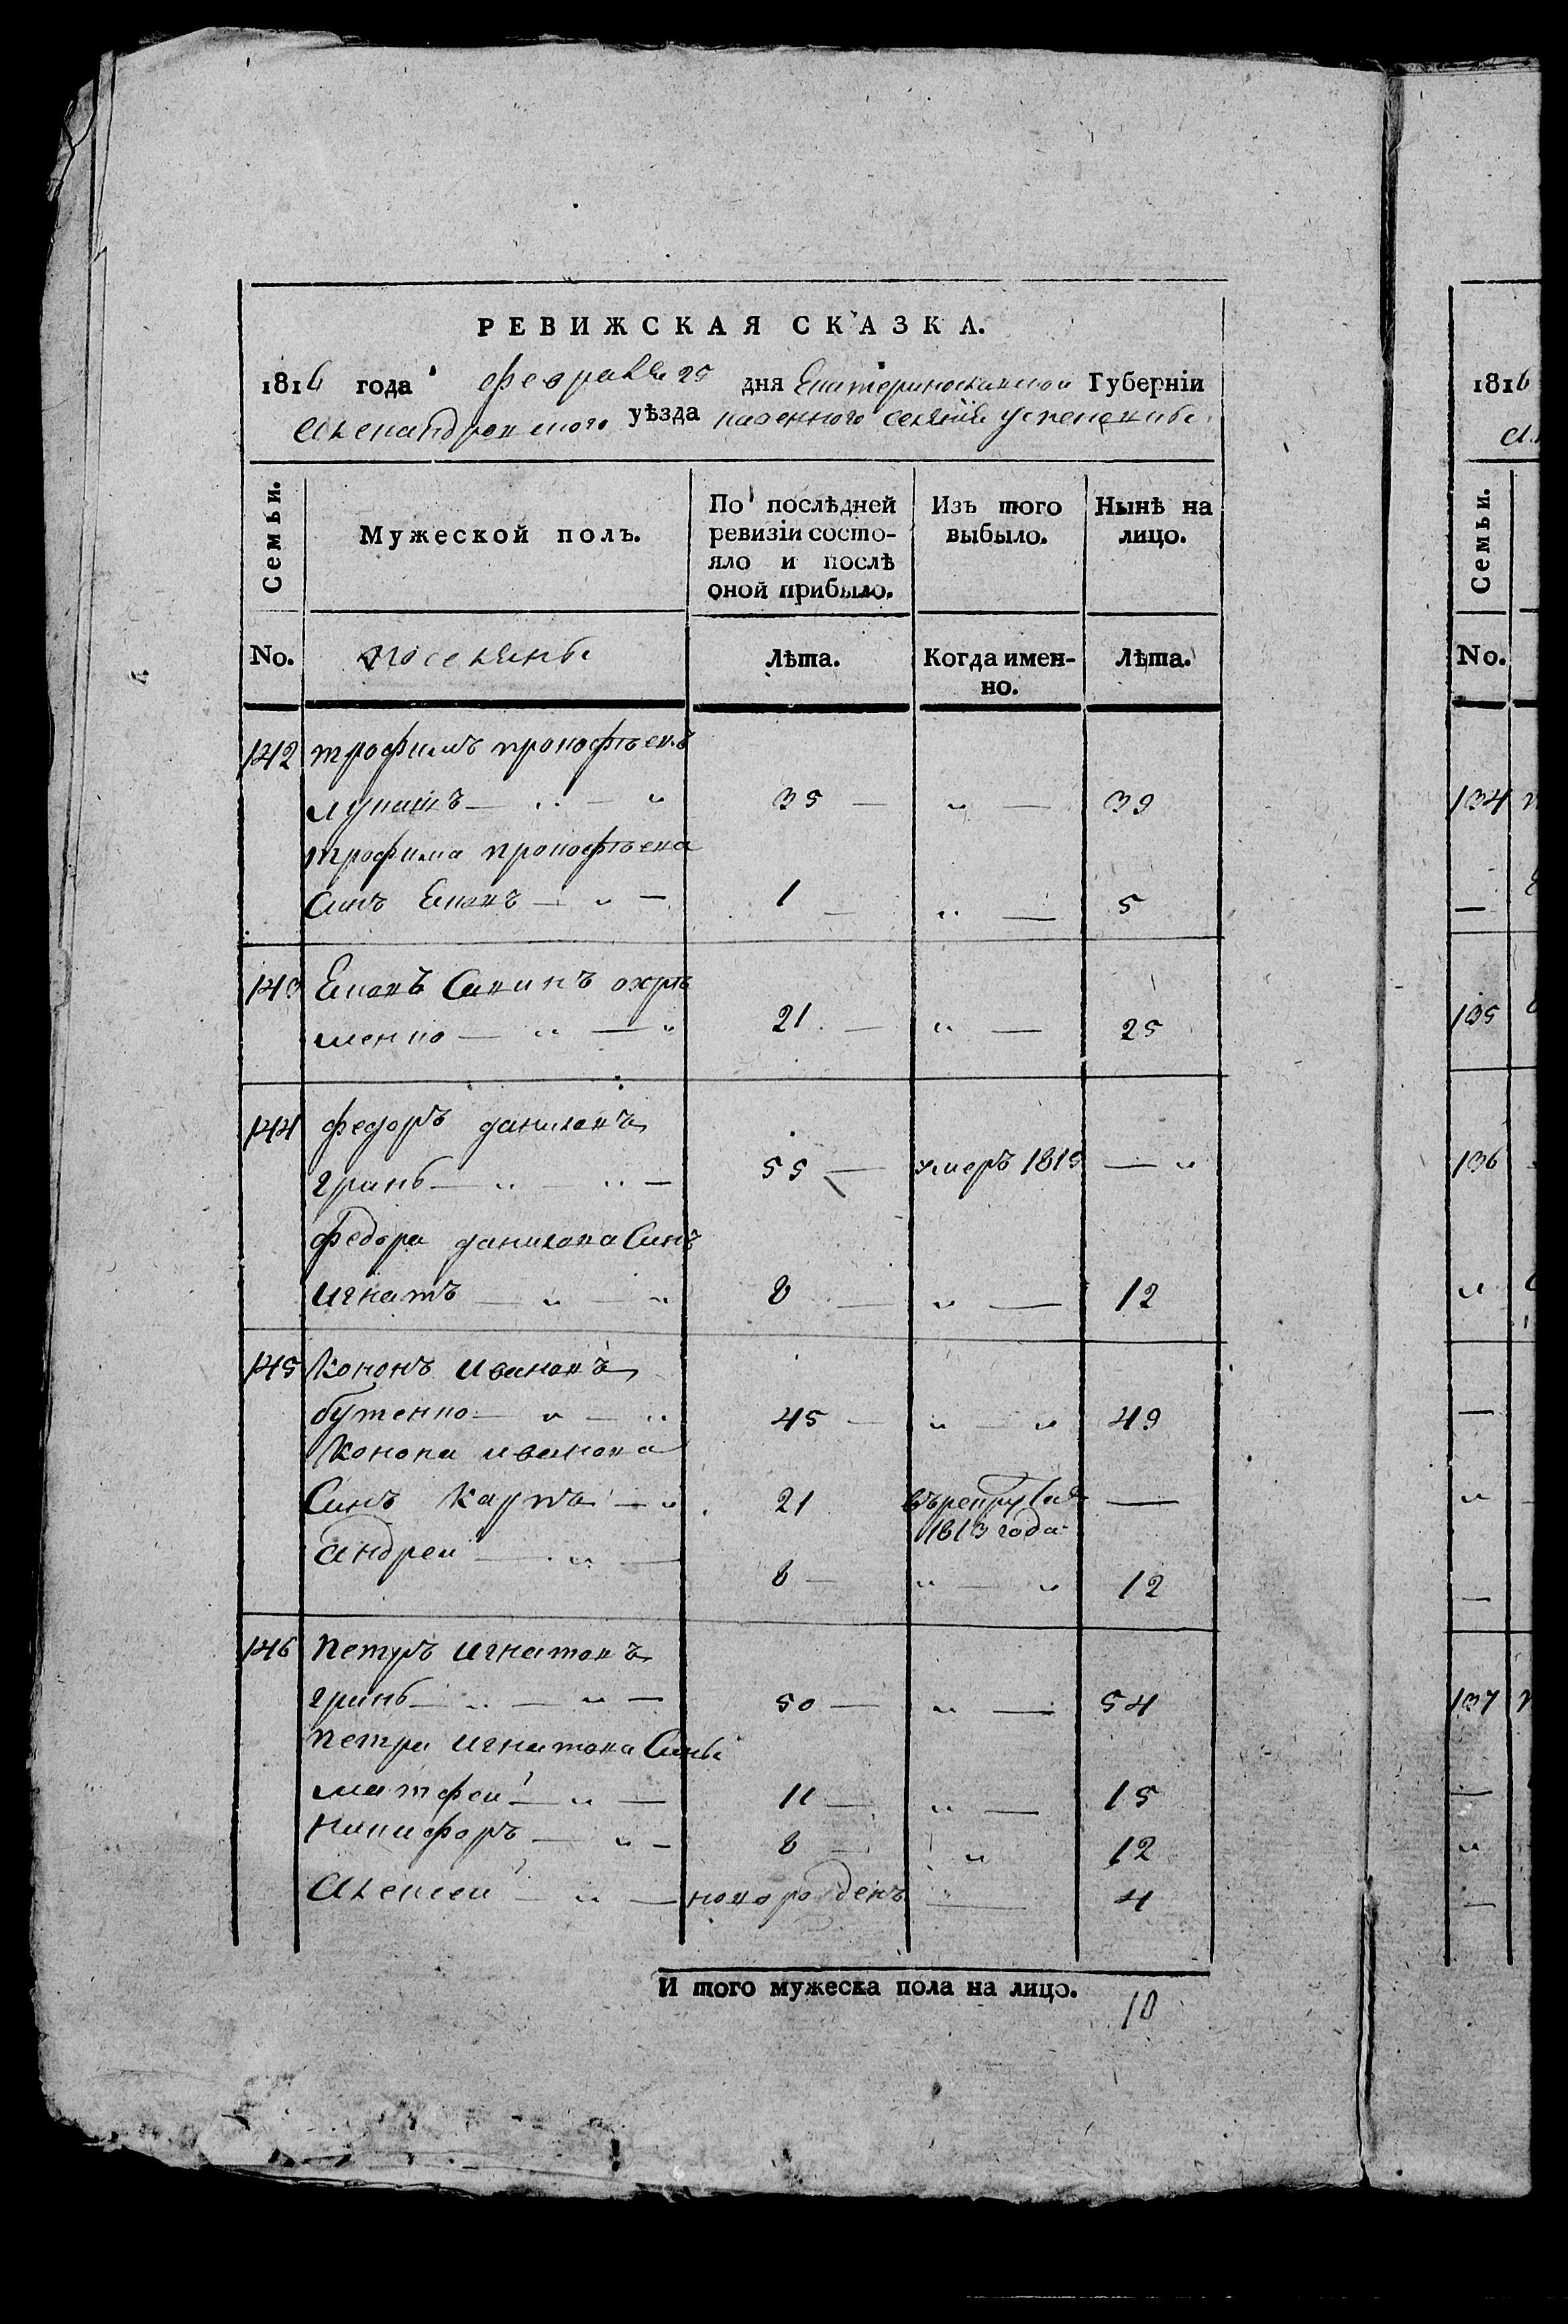 РЕВИЖСКАЯ СКАЗКА.
1816 года февраля 25 дня Екатеринославской Губерніи
Александровского уѣзда казенного селенія успеновки
Семьи.
Мужеской полъ.
По послѣдней ревизіи состо-
яло и послѣ
оной прибыло.
Изъ того
выбыло.
Нынѣ на
лицо.
No.
поселяны
Лѣта.
Когда имен-
но.
Лѣта.
142 трофимъ прокофъевъ
лупашъ — 35 — „ — 39
трофима прокофъева
Синъ Ековъ — „ — 1 — „ — 5
143 Ековъ Савинъ охри
менко — „ — „ 21 — „ — 25
144 федоръ даниловъ
гринь — „ — „ — 55 — умеръ 1815 — „
федора данилова Синъ
игнатъ — „ — „ 8 — „ — 12
145 Кононъ ивановъ
бутенко — „ — „ 45 — „ — „ 49
Конона иванова
Синъ Карпъ — „ 21 въ рекрути —
1813 года
андреи — „ — 8 — „ — „ 12
146 петръ игнатовъ
гринь — „ — „ — 50 — „ — 54
петра игнатова Сины
матфеи — „ — 11 — „ — 15
никифоръ — „ — 8 — „ 12
Алексеи — „ — новорожденъ — 4
И того мужеска пола на лицо. 10
1816
Семьи.
No.
134
135
136
137